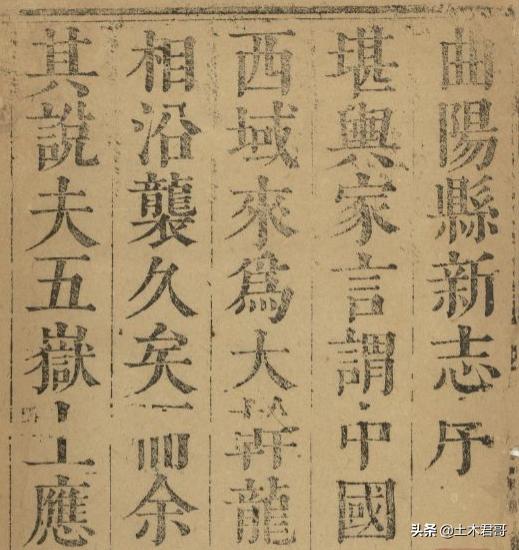 曲陽縣新志序
堪輿家言謂中國
西域來爲大幹龍
相沿襲久矣而余
其說夫五嶽上應
头条 @土木君哥